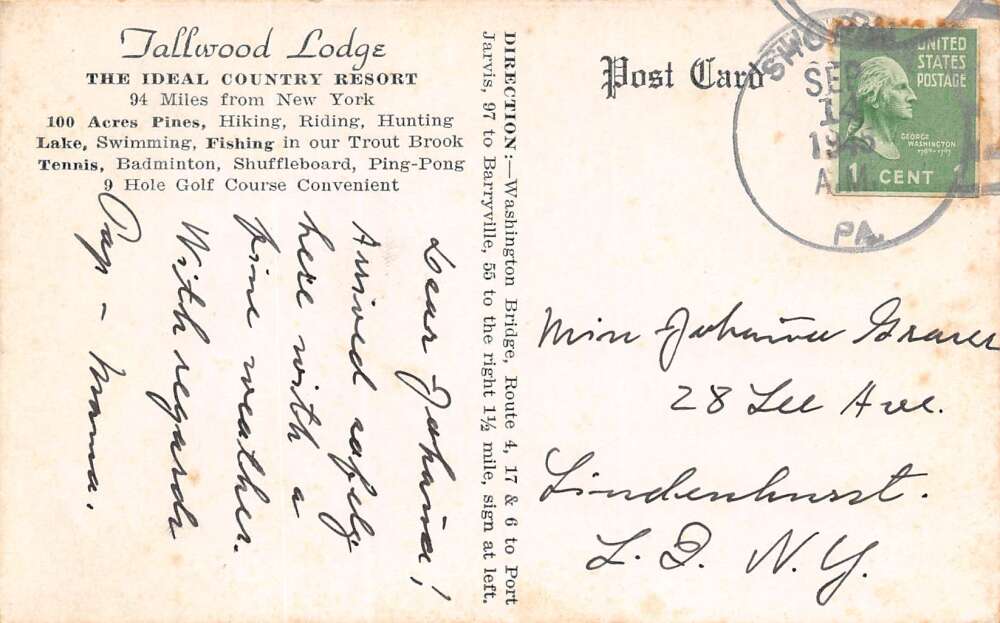 Tallwood Lodge
THE IDEAL COUNTRY RESORT
94 Miles from New York
100 Acres Pines, Hiking, Riding, Hunting
Lake, Swimming, Fishing in our Trout Brook
Tennis, Badminton, Shuffleboard, Ping-Pong
9 Hole Golf Course Convenient
Dear Johanna!
Arrived safely
here with a
fine weather.
With regards
Pap - Mama.
DIRECTION:—Washington Bridge, Route 4, 17 & 6 to Port
Jarvis, 97 to Barryville, 55 to the right 1½ mile, sign at left.
Post Card
SEP
14
A.M.
PA.
UNITED
STATES
POSTAGE
GEORGE
WASHINGTON
1789-1797
1 CENT 1
Miss Johanna
28 Lee Ave.
Lindenhurst.
L. I. N. Y.